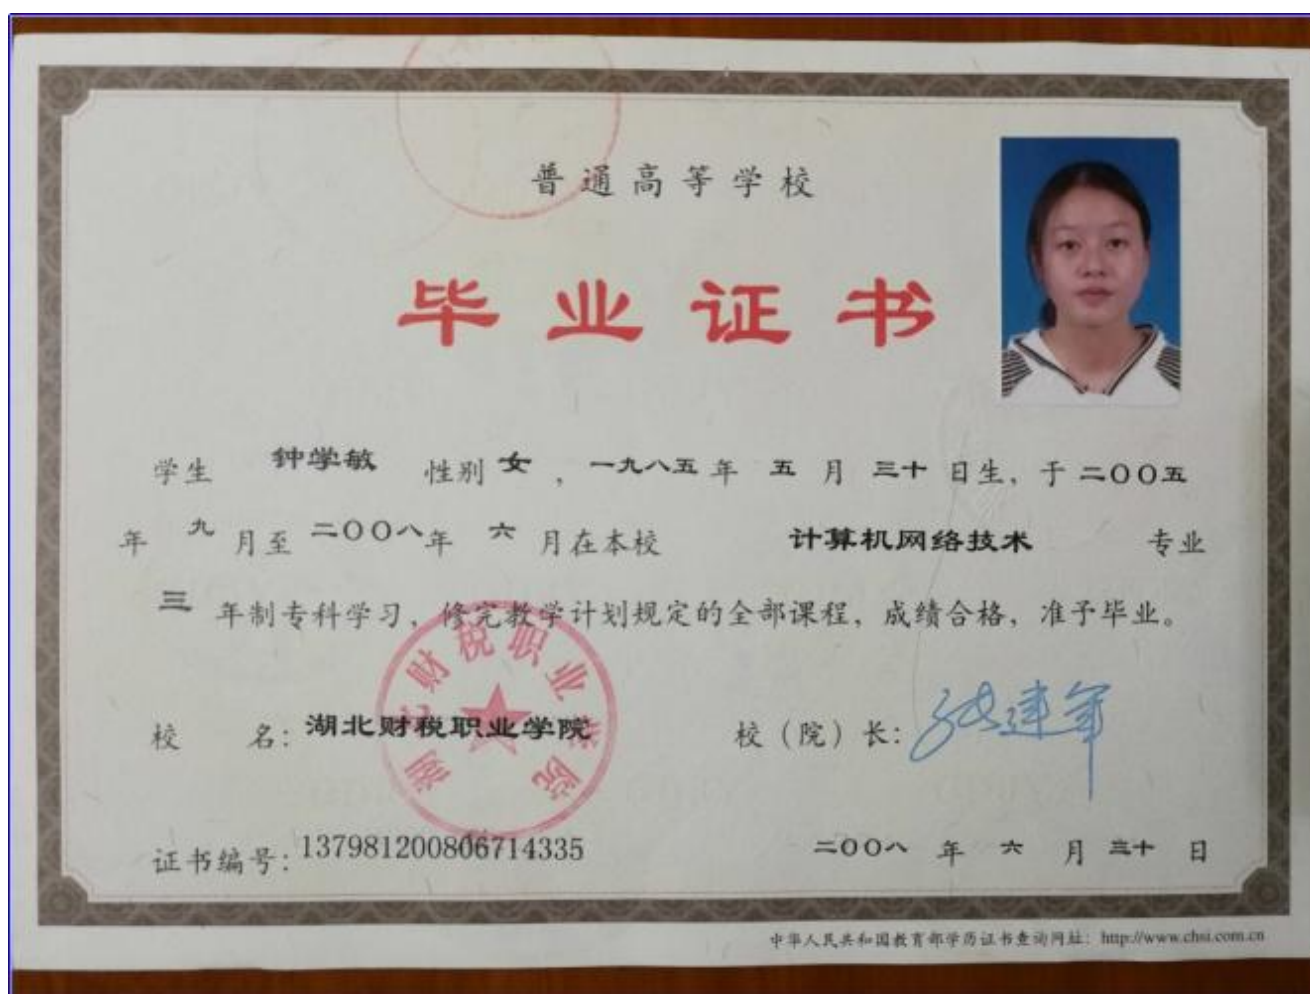 普通高等学校
毕业证书
学生 钟学敏 性别 女 , 一九八五 年 五 月 三十 日生, 于 二〇〇五
年 九 月至 二〇〇八 年 六 月在本校 计算机网络技术 专业
三 年制专科学习, 修完教学计划规定的全部课程, 成绩合格, 准予毕业。
湖北财税职业学院
校 名: 湖北财税职业学院 校(院)长: 张建军
证书编号: 137981200806714335 二〇〇八 年 六 月 三十 日
中华人民共和国教育部学历证书查询网址: http://www.chsi.com.cn